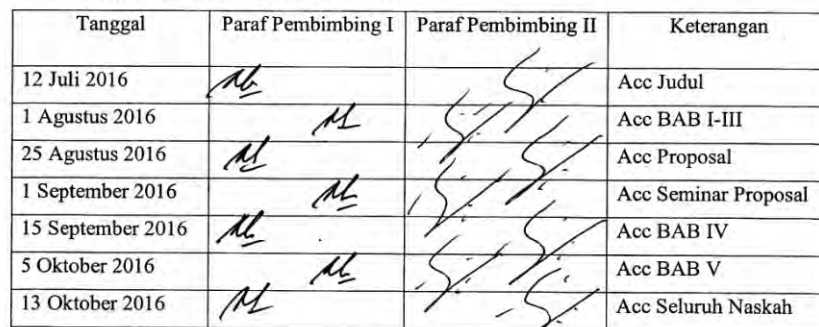 Tanggal Paraf Pembimbing I Paraf Pembimbing II Keterangan
12 Juli 2016 Acc Judul
1 Agustus 2016 Acc BAB I-III
25 Agustus 2016 Acc Proposal
1 September 2016 Acc Seminar Proposal
15 September 2016 Acc BAB IV
5 Oktober 2016 Acc BAB V
13 Oktober 2016 Acc Seluruh Naskah